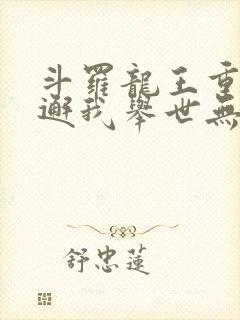 斗羅龍王重
邂我舉世無
舒忠蓮